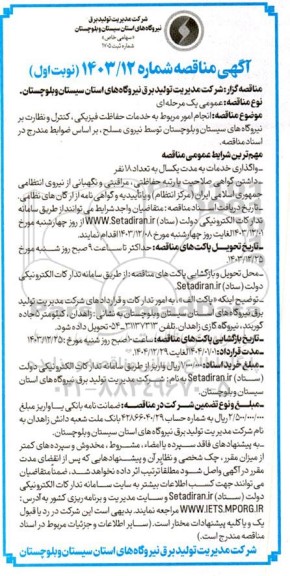 شرکت مدیریت تولید برق
نیروگاه‌های استان سیستان و بلوچستان
«سهامی خاص»
شماره ثبت ۱۷۰۵
آگهی مناقصه شماره ۱۴۰۳/۱۲ (نوبت اول)
مناقصه گزار: شرکت مدیریت تولید برق نیروگاه‌های استان سیستان و بلوچستان.
نوع مناقصه: عمومی یک مرحله‌ای
موضوع مناقصه: انجام امور مربوط به خدمات حفاظت فیزیکی، کنترل و نظارت بر
نیروگاه های سیستان وبلوچستان توسط نیروی مسلح، بر اساس ضوابط مندرج در
اسناد مناقصه.
مهم‌ترین شرایط عمومی مناقصه
ـ واگذاری خدمات به مدت یکسال به تعداد ۱۸ نفر
ـ داشتن گواهی صلاحیت یا رتبه حفاظتی، مراقبتی و نگهبانی از نیروی انتظامی
جمهوری اسلامی ایران (مرکز انتظام) و یا تأییدیه و گواهی نامه از ارگان های نظامی.
ـ تاریخ دریافت اسناد مناقصه: متقاضیان واجد شرایط می توانند از طریق سامانه
تدارکات الکترونیکی دولت (ستاد) www.Setadiran.ir از روز چهارشنبه مورخ
۱۴۰۳/۱۲/۰۱ لغایت روز چهارشنبه مورخ ۱۴۰۳/۱۲/۰۸ اقدام نمایند.
ـ تاریخ تحویل پاکت‌های مناقصه: حداکثر تا ساعت ۹ صبح روز شنبه مورخ
۱۴۰۳/۱۲/۲۵
ـ محل تحویل و بازگشایی پاکت های مناقصه: از طریق سامانه تدارکات الکترونیکی
دولت (ستاد) Setadiran.ir.
ـ توضیح اینکه «پاکت الف»، به امور تدارکات و قراردادهای شرکت مدیریت تولید
برق نیروگاه های استان سیستان و بلوچستان به نشانی: زاهدان، کیلومتر ۵ جاده
کوربند، نیروگاه گازی زاهدان، تلفن: ۳۱۳۷۳۱۳۰ـ۰۵۴ تحویل داده شود.
ـ تاریخ بازگشایی پاکت‌های مناقصه: ساعت ۱۰ صبح روز شنبه مورخ ۱۴۰۳/۱۲/۲۵
ـ مدت قرارداد: ۱۴۰۴/۰۱/۰۱ لغایت ۱۴۰۴/۱۲/۲۹.
ـ مبلغ خرید اسناد: ریال واریز از طریق سامانه تدارکات الکترونیکی دولت
(ستاد) Setadiran.ir به نام: شرکت مدیریت تولید برق نیروگاه های استان
سیستان و بلوچستان.
ـ مبلغ و نوع تضمین شرکت در مناقصه: ضمانت نامه بانکی یا واریز مبلغ
ریال به شماره حساب بانک ملت شعبه دانش زاهدان به
نام شرکت مدیریت تولید برق نیروگاه های استان سیستان وبلوچستان.
ـ به پیشنهادهای فاقد سپرده یا امضاء، مشروط، مخدوش و سپرده‌های کمتر
از میزان مقرر، چک شخصی و نظایر آن و پیشنهادهایی که پس از انقضای مدت
مقرر در آگهی واصل شود مطلقا ترتیب اثر داده نخواهد شد، ضمنا متقاضیان
می توانند جهت کسب اطلاعات بیشتر به سایت سامانه تدارکات الکترونیکی
دولت (ستاد) Setadiran.ir و سایت مدیریت و برنامه ریزی کشور به آدرس :
WWW.IETS.MPORG.IR مراجعه نمایند. بدیهی است این شرکت در رد یا قبول
یک و یا کلیه پیشنهادات مختار است. (سایر اطلاعات و جزئیات مربوط در اسناد
مناقصه مندرج است.)
شرکت مدیریت تولید برق نیروگاه‌های استان سیستان و بلوچستان